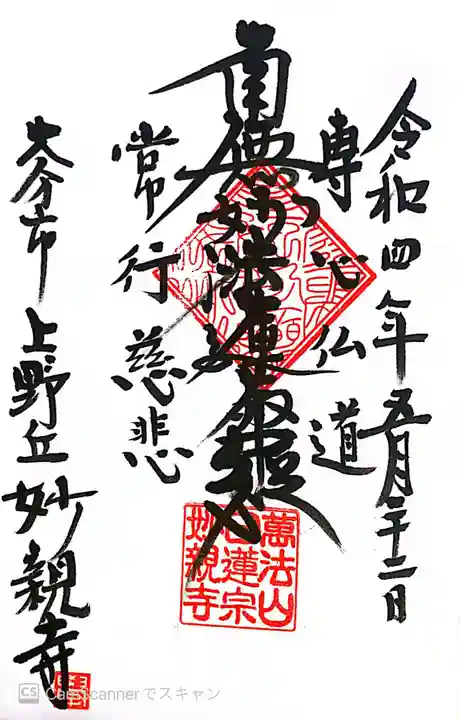 令和四年五月二十二日
専心仏道
南無妙法蓮華経
常行慈悲
大分市上野丘妙親寺
萬法山
日蓮宗
妙親寺
CS CamScannerでスキャン